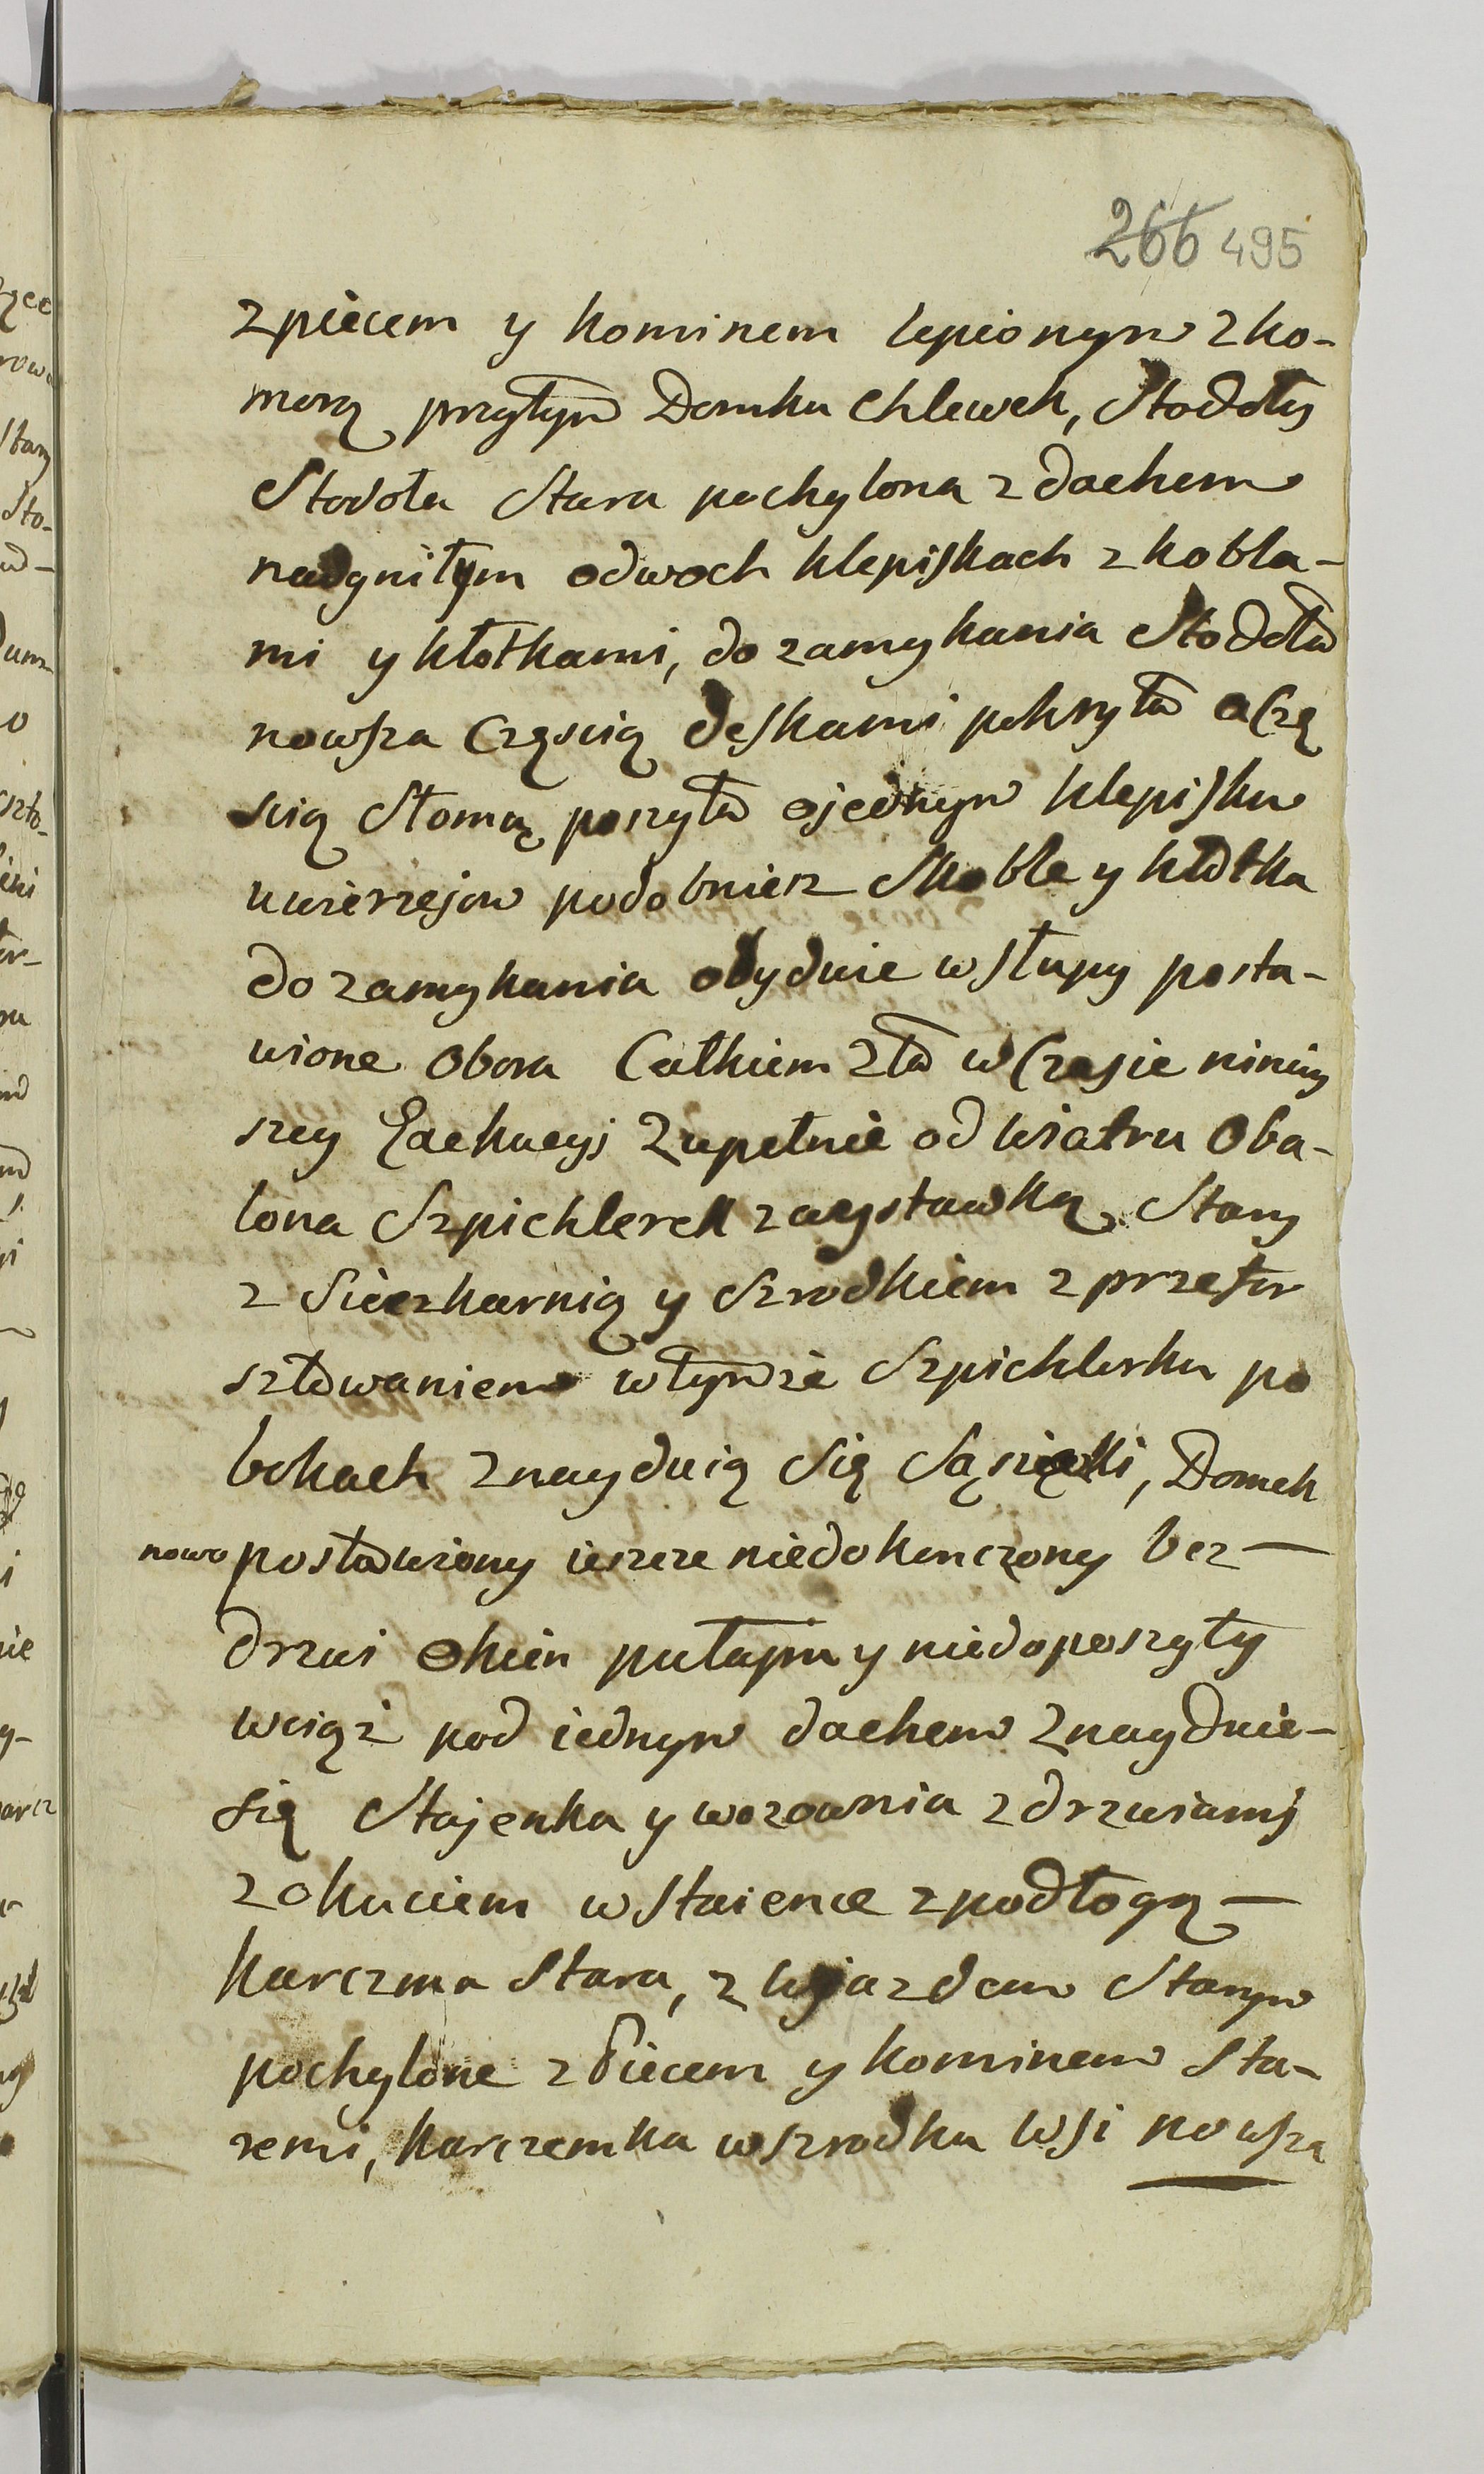 266 495
z piecem y kominem lepionym z ko-
morą przytym Domku Chlewek, Stodoły
Stodoła Stara pochylona z dachem
nadgniłym o dwoch klepiskach z kobla-
mi y kłotkami, do zamykania Stodoła
nowsza Częscią deskami pokryta a Czę
scią Słomą poszyta o jednym klepisku
u wierzejow podobniez Skoble y kłotka
do zamykania obydwie w słupy posta-
wione Obora Całkiem zła w Czasie niniey
szey Zupełnie od Wiatru Oba-
lona Szpichlerek z wystawką Stary
z Sieczkarnią y Szrodkiem z przefor
sztowaniem w tymze Szpichlerku po
bokach znayduią Się Sąsieki, Domek
nowo postawiony ieszcze niedokonczony bez -
drzwi okien pułapu y niedoposzyty
wciąż pod iednym dachem Znayduie-
się Stajenka y wozownia z drzwiamj
z okuciem w staience z podłogą -
Karczma Stara, z Wjazdem Starym
pochylone z Piecem y kominem Sta-
remi, karczemka wszrodku Wsi nowsza